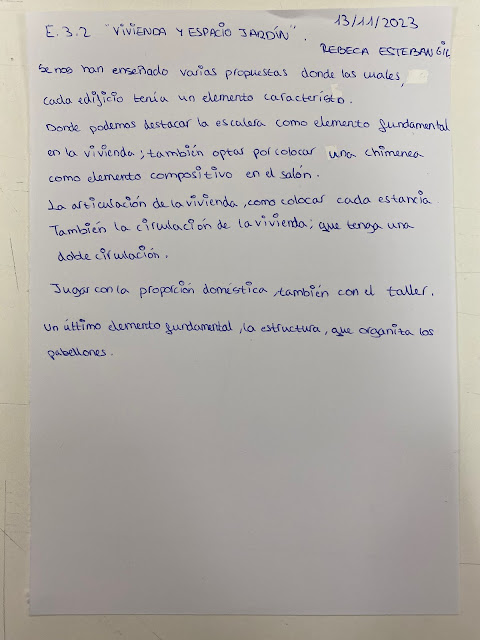 E.3.2 "VIVIENDA Y ESPACIO JARDÍN".
13/11/2023
REBECA ESTEBAN GIL
Se nos han enseñado varias propuestas donde las cuales,
cada edificio tenía un elemento característo.
Donde podemos destacar la escalera como elemento fundamental
en la vivienda; también optar por colocar una chimenea
como elemento compositivo en el salón.
La articulación de la vivienda, como colocar cada estancia
También la circulación de la vivienda; que tenga una
doble circulación.
Jugar con la proporción doméstica, también con el taller.
Un último elemento fundamental, la estructura, que organiza los
pabellones.